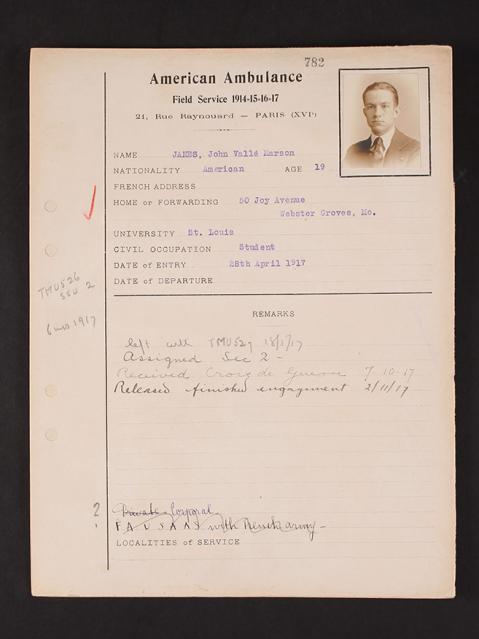 782
American Ambulance
Field Service 1914-15-16-17
21, Rue Raynouard — PARIS (XVIᵉ)
NAME JANES, John Vallé Marson
NATIONALITY American AGE 19
FRENCH ADDRESS
HOME or FORWARDING 50 Joy Avenue
Webster Groves, Mo.
UNIVERSITY St. Louis
CIVIL OCCUPATION Student
DATE of ENTRY 28th April 1917
DATE of DEPARTURE
TMU 526
SSU 2
6 mos 1917
REMARKS
left with TMU 527 18/5/17
Assigned Sec 2 -
Received Croix de Guerre 7-10-17
Released - finished engagement 2/11/17
?
Private Corporal
with French army -
LOCALITIES of SERVICE